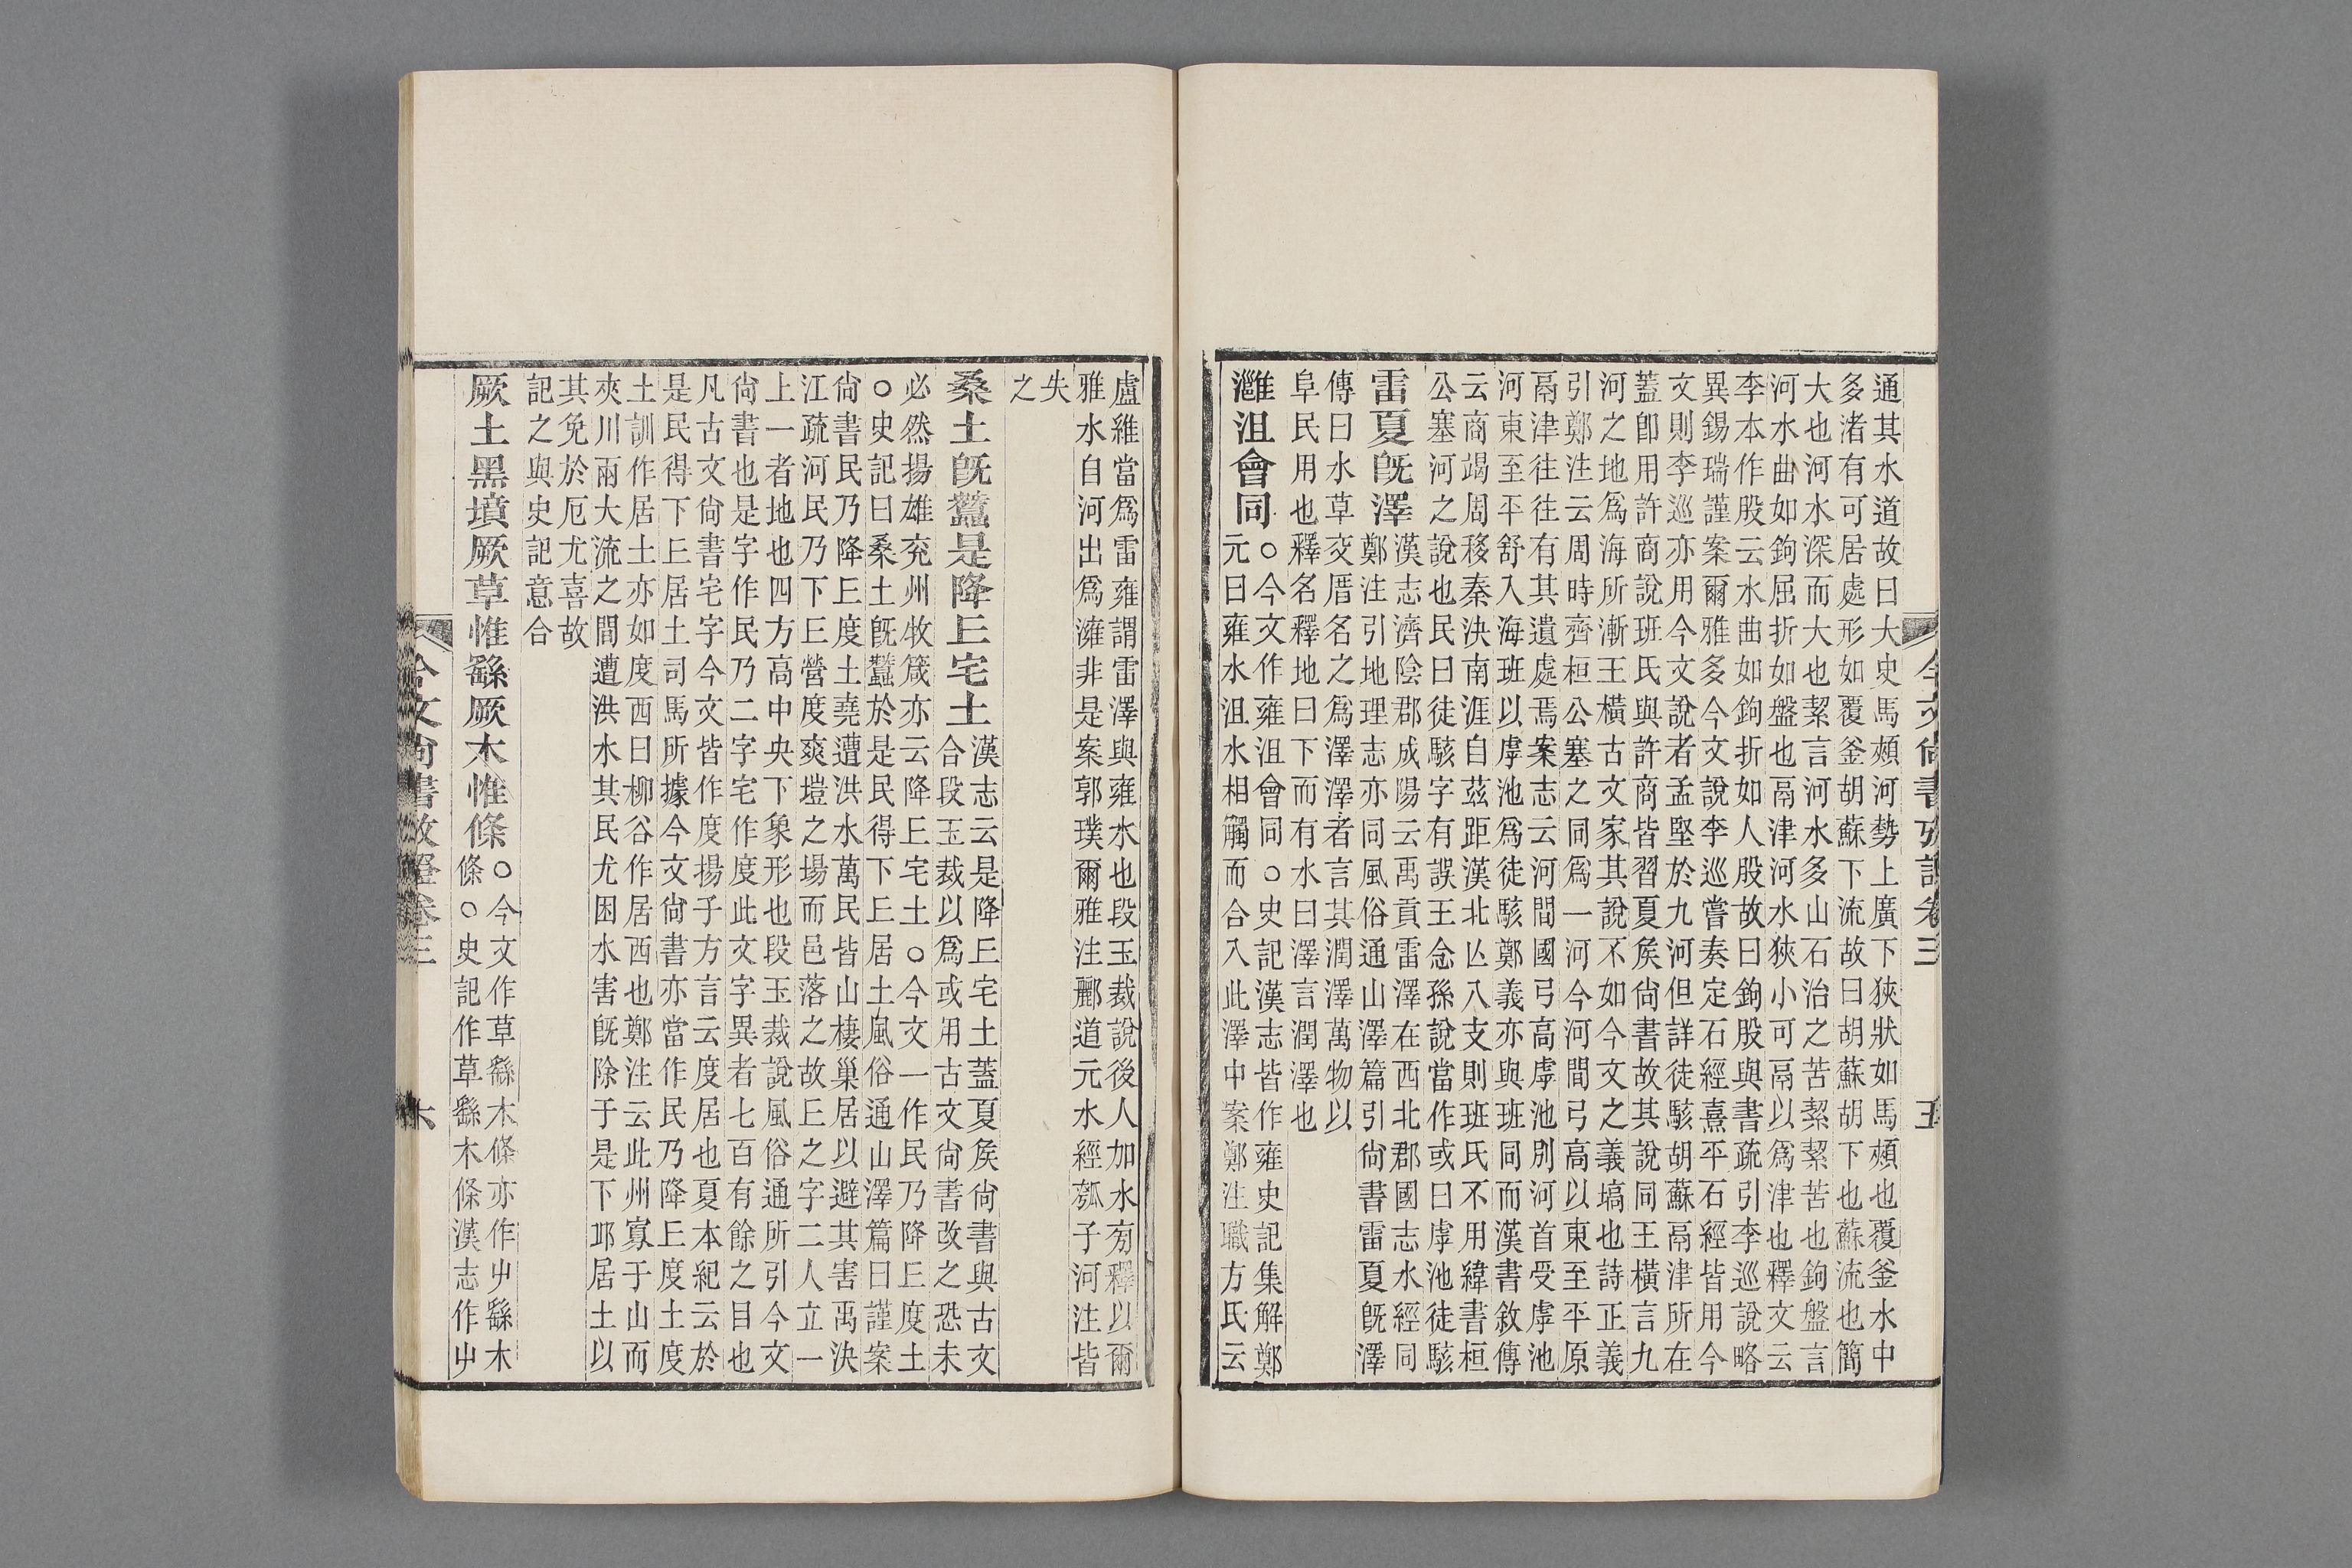 通其水道故曰大史馬頰河勢上廣下狹狀如馬頰也覆釜水中
多渚有可居處形如覆釜胡蘇下流故曰胡蘇胡下也蘇流也簡
大也河水深而大也絜言河水多山石治之苦絜絜苦也鉤盤言
河水曲如鉤屈折如盤也鬲津河水狹小可鬲以爲津也釋文云
李本作股云水曲如鉤折如人股故曰鉤股與書疏引李巡說略
異錫瑞謹案爾雅多今文說李巡嘗奏定石經熹平石經皆用今
文則李巡亦用今文說者孟堅於九河但詳徒駭胡蘇鬲津所在
蓋卽用許商說班氏與許商皆習夏矦尙書故其說同王橫言九
河之地爲海所漸王橫古文家其說不如今文之義塙也詩正義
引鄭注云周時齊桓公塞之同爲一河今河間弓高以東至平原
鬲津往往有其遺處焉案志云河間國弓高虖池別河首受虖池
河東至平舒入海班以虖池爲徒駭鄭義亦與班同而漢書敘傳
云商竭周移秦決南涯自茲距漢北亾八支則班氏不用緯書桓
公塞河之說也民曰徒駭字有誤王念孫說當作或曰虖池徒駭
雷夏旣澤
漢志濟陰郡成陽云禹貢雷澤在西北郡國志水經同
鄭注引地理志亦同風俗通山澤篇引尙書雷夏旣澤
傳曰水草交厝名之爲澤澤者言其潤澤萬物以
阜民用也釋名釋地曰下而有水曰澤言潤澤也
灉沮會同
○今文作雍沮會同○史記漢志皆作雍史記集解鄭
元曰雍水沮水相觸而合入此澤中案鄭注職方氏云
今文尙書攷證卷三
五
盧維當爲雷雍謂雷澤與雍水也段玉裁說後人加水旁釋以爾
雅水自河出爲灉非是案郭璞爾雅注酈道元水經瓠子河注皆
失
之
桑土旣蠶是降丘宅土
漢志云是降丘宅土蓋夏矦尙書與古文
合段玉裁以爲或用古文尙書改之恐未
必然揚雄兗州牧箴亦云降丘宅土○今文一作民乃降丘度土
○史記曰桑土旣蠶於是民得下丘居土風俗通山澤篇曰謹案
尙書民乃降丘度土堯遭洪水萬民皆山棲巢居以避其害禹決
江疏河民乃下丘營度爽塏之場而邑落之故丘之字二人立一
上一者地也四方高中央下象形也段玉裁說風俗通所引今文
尙書也是字作民乃二字宅作度此文字異者七百有餘之目也
凡古文尙書宅字今文皆作度揚子方言云度居也夏本紀云於
是民得下丘居土司馬所據今文尙書亦當作民乃降丘度土度
土訓作居土亦如度西曰柳谷作居西也鄭注云此州寡于山而
夾川兩大流之間遭洪水其民尤困水害旣除于是下邱居土以
其免於厄尤喜故
記之與史記意合
厥土黑墳厥草惟繇厥木惟條
○今文作草繇木條亦作屮繇木
條○史記作草繇木條漢志作屮
今文尙書攷證卷三
六